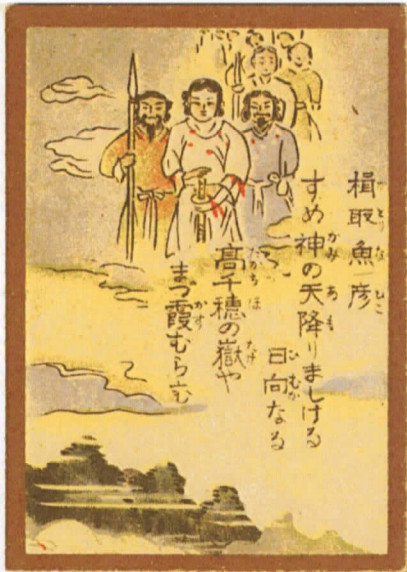 楫取魚彦
すめ神の天降りましける
日向なる
高千穂の嶽や
まづ霞むらむ